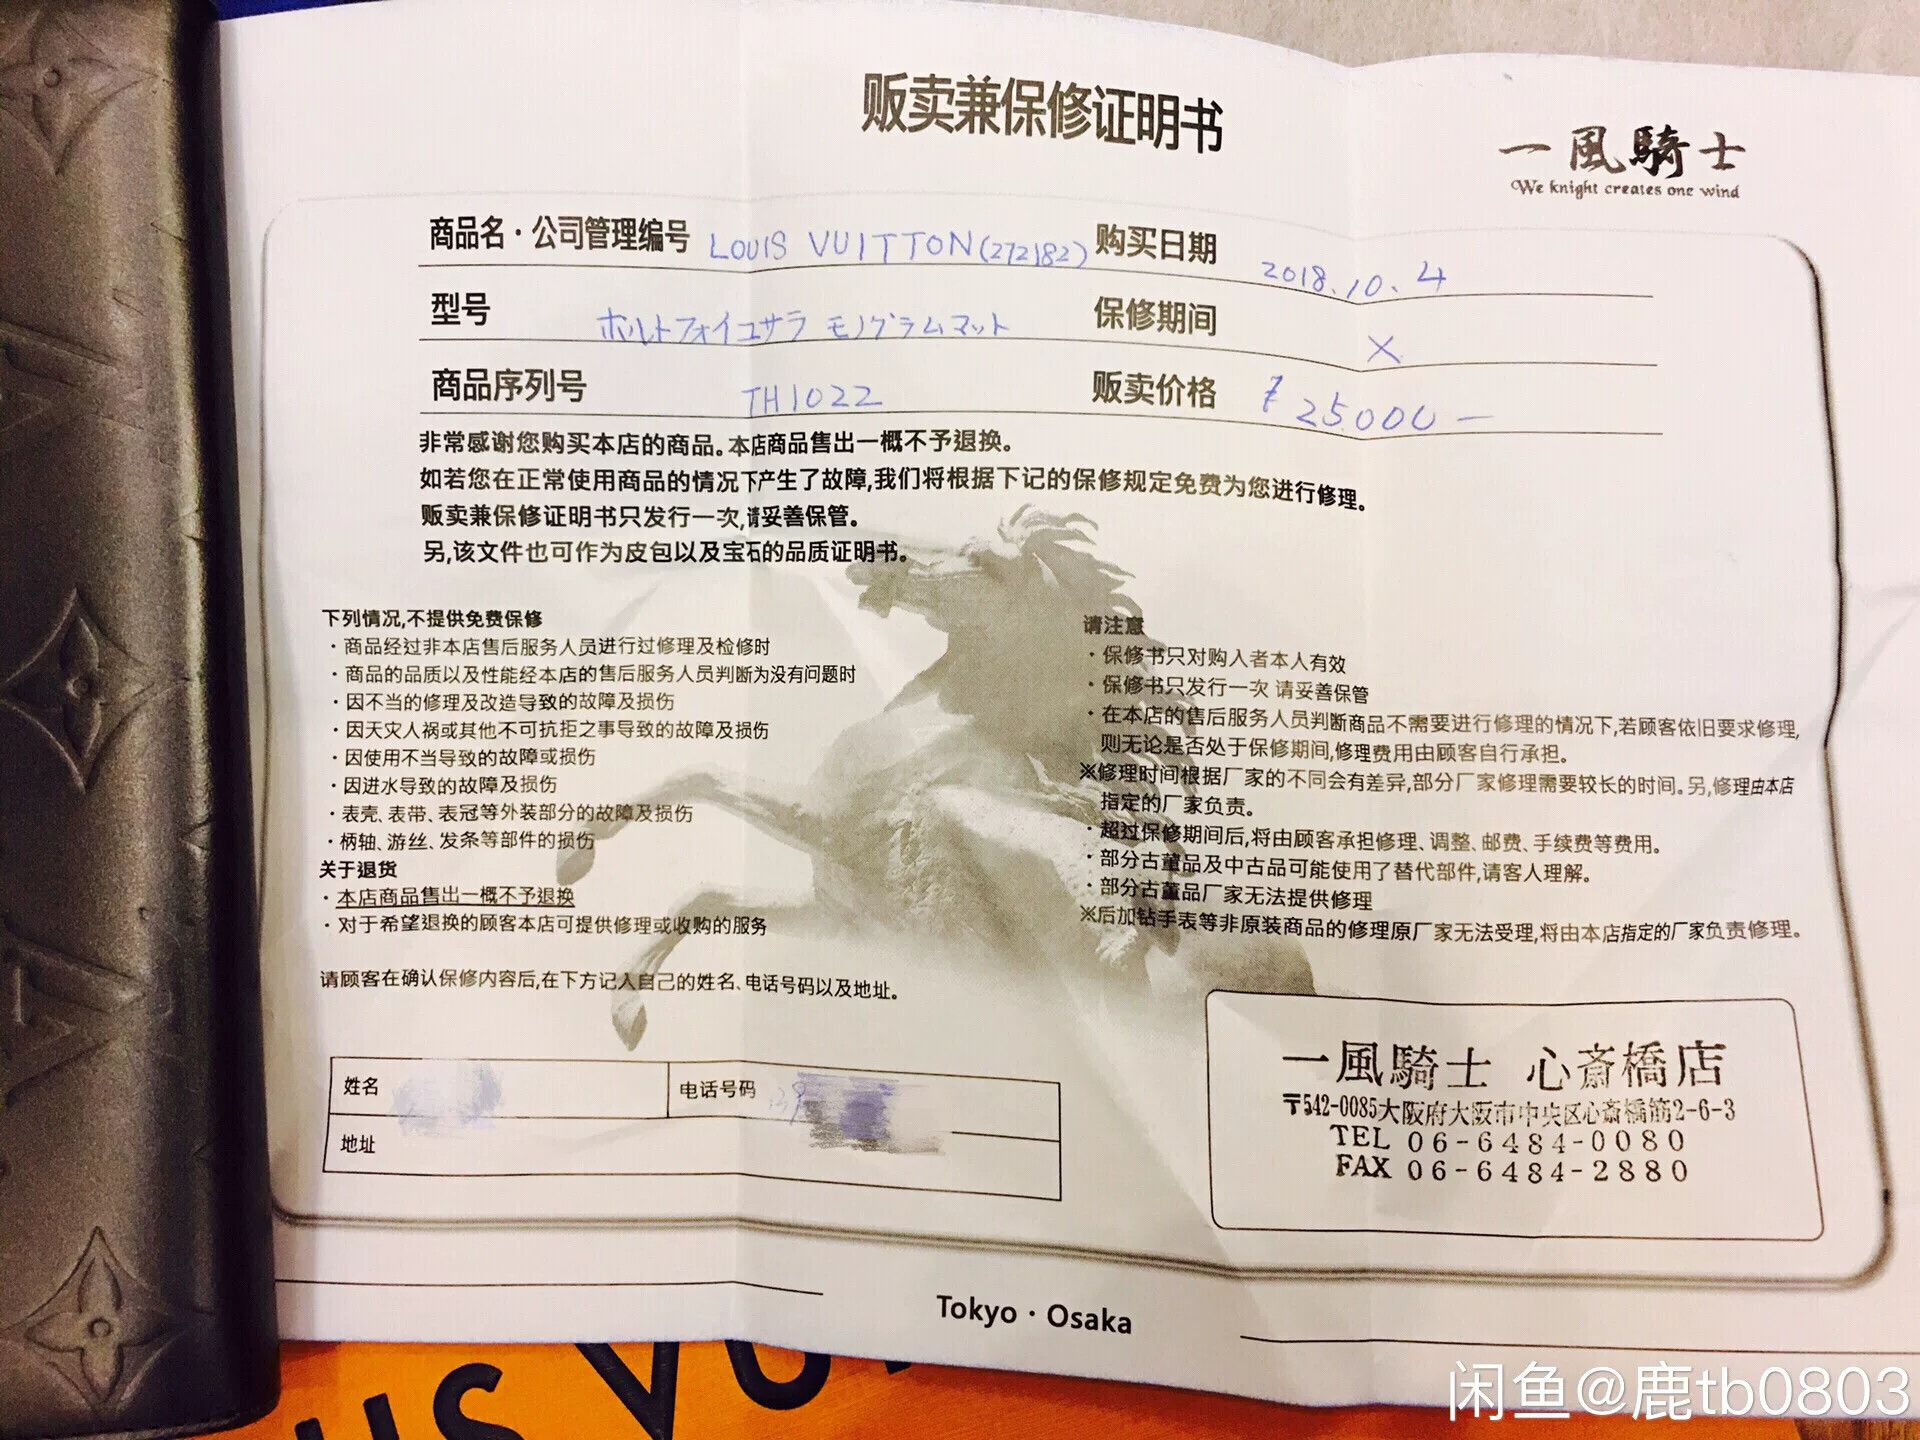 贩卖兼保修证明书
一風騎士
We knight creates one wind
商品名・公司管理编号 LOUIS VUITTON(272182) 购买日期 2018.10.4
型号 ポルトフォイユサラ モノグラムマット 保修期间 ×
商品序列号 TH1022 贩卖价格 ¥25000-
非常感谢您购买本店的商品。本店商品售出一概不予退换。
如若您在正常使用商品的情况下产生了故障,我们将根据下记的保修规定免费为您进行修理。
贩卖兼保修证明书只发行一次,请妥善保管。
另,该文件也可作为皮包以及宝石的品质证明书。
下列情况,不提供免费保修
・商品经过非本店售后服务人员进行过修理及检修时
・商品的品质以及性能经本店的售后服务人员判断为没有问题时
・因不当的修理及改造导致的故障及损伤
・因天灾人祸或其他不可抗拒之事导致的故障及损伤
・因使用不当导致的故障或损伤
・因进水导致的故障及损伤
・表壳、表带、表冠等外装部分的故障及损伤
・柄轴、游丝、发条等部件的损伤
关于退货
・本店商品售出一概不予退换
・对于希望退换的顾客本店可提供修理或收购的服务
请顾客在确认保修内容后,在下方记入自己的姓名、电话号码以及地址。
请注意
・保修书只对购入者本人有效
・保修书只发行一次 请妥善保管
・在本店的售后服务人员判断商品不需要进行修理的情况下,若顾客依旧要求修理,
则无论是否处于保修期间,修理费用由顾客自行承担。
※修理时间根据厂家的不同会有差异,部分厂家修理需要较长的时间。另,修理由本店
指定的厂家负责。
・超过保修期间后,将由顾客承担修理、调整、邮费、手续费等费用。
・部分古董品及中古品可能使用了替代部件,请客人理解。
・部分古董品厂家无法提供修理
※后加钻手表等非原装商品的修理原厂家无法受理,将由本店指定的厂家负责修理。
姓名 电话号码
地址
一風騎士 心斎橋店
〒542-0085大阪府大阪市中央区心斎橋筋2-6-3
TEL 06-6484-0080
FAX 06-6484-2880
Tokyo・Osaka
闲鱼@鹿tb0803